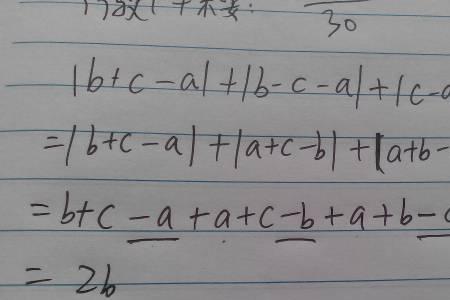 30
|b+c-a|+|b-c-a|+|c-a
=|b+c-a|+|a+c-b|+|a+b-
=b+c-a+a+c-b+a+b-c
=2b